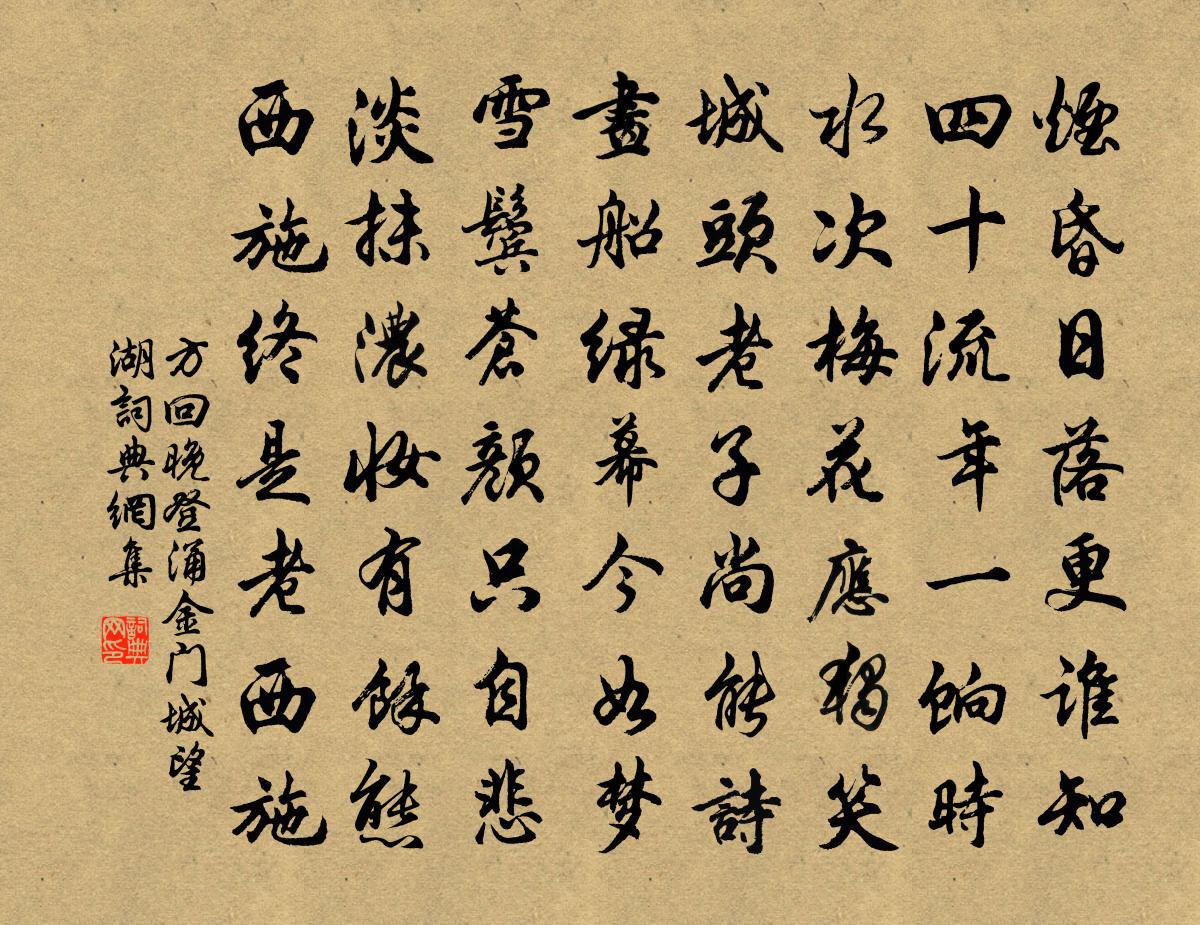 煙昏日落更誰知
四十流年一餉時
水次梅花應獨笑
城頭老子尚能詩
畫船緑幕今如夢
雪鬢蒼顏只自悲
淡抹濃妝有餘態
西施終是老西施
方回晚登涌金门城望
湖詞典網集
詞典
网印